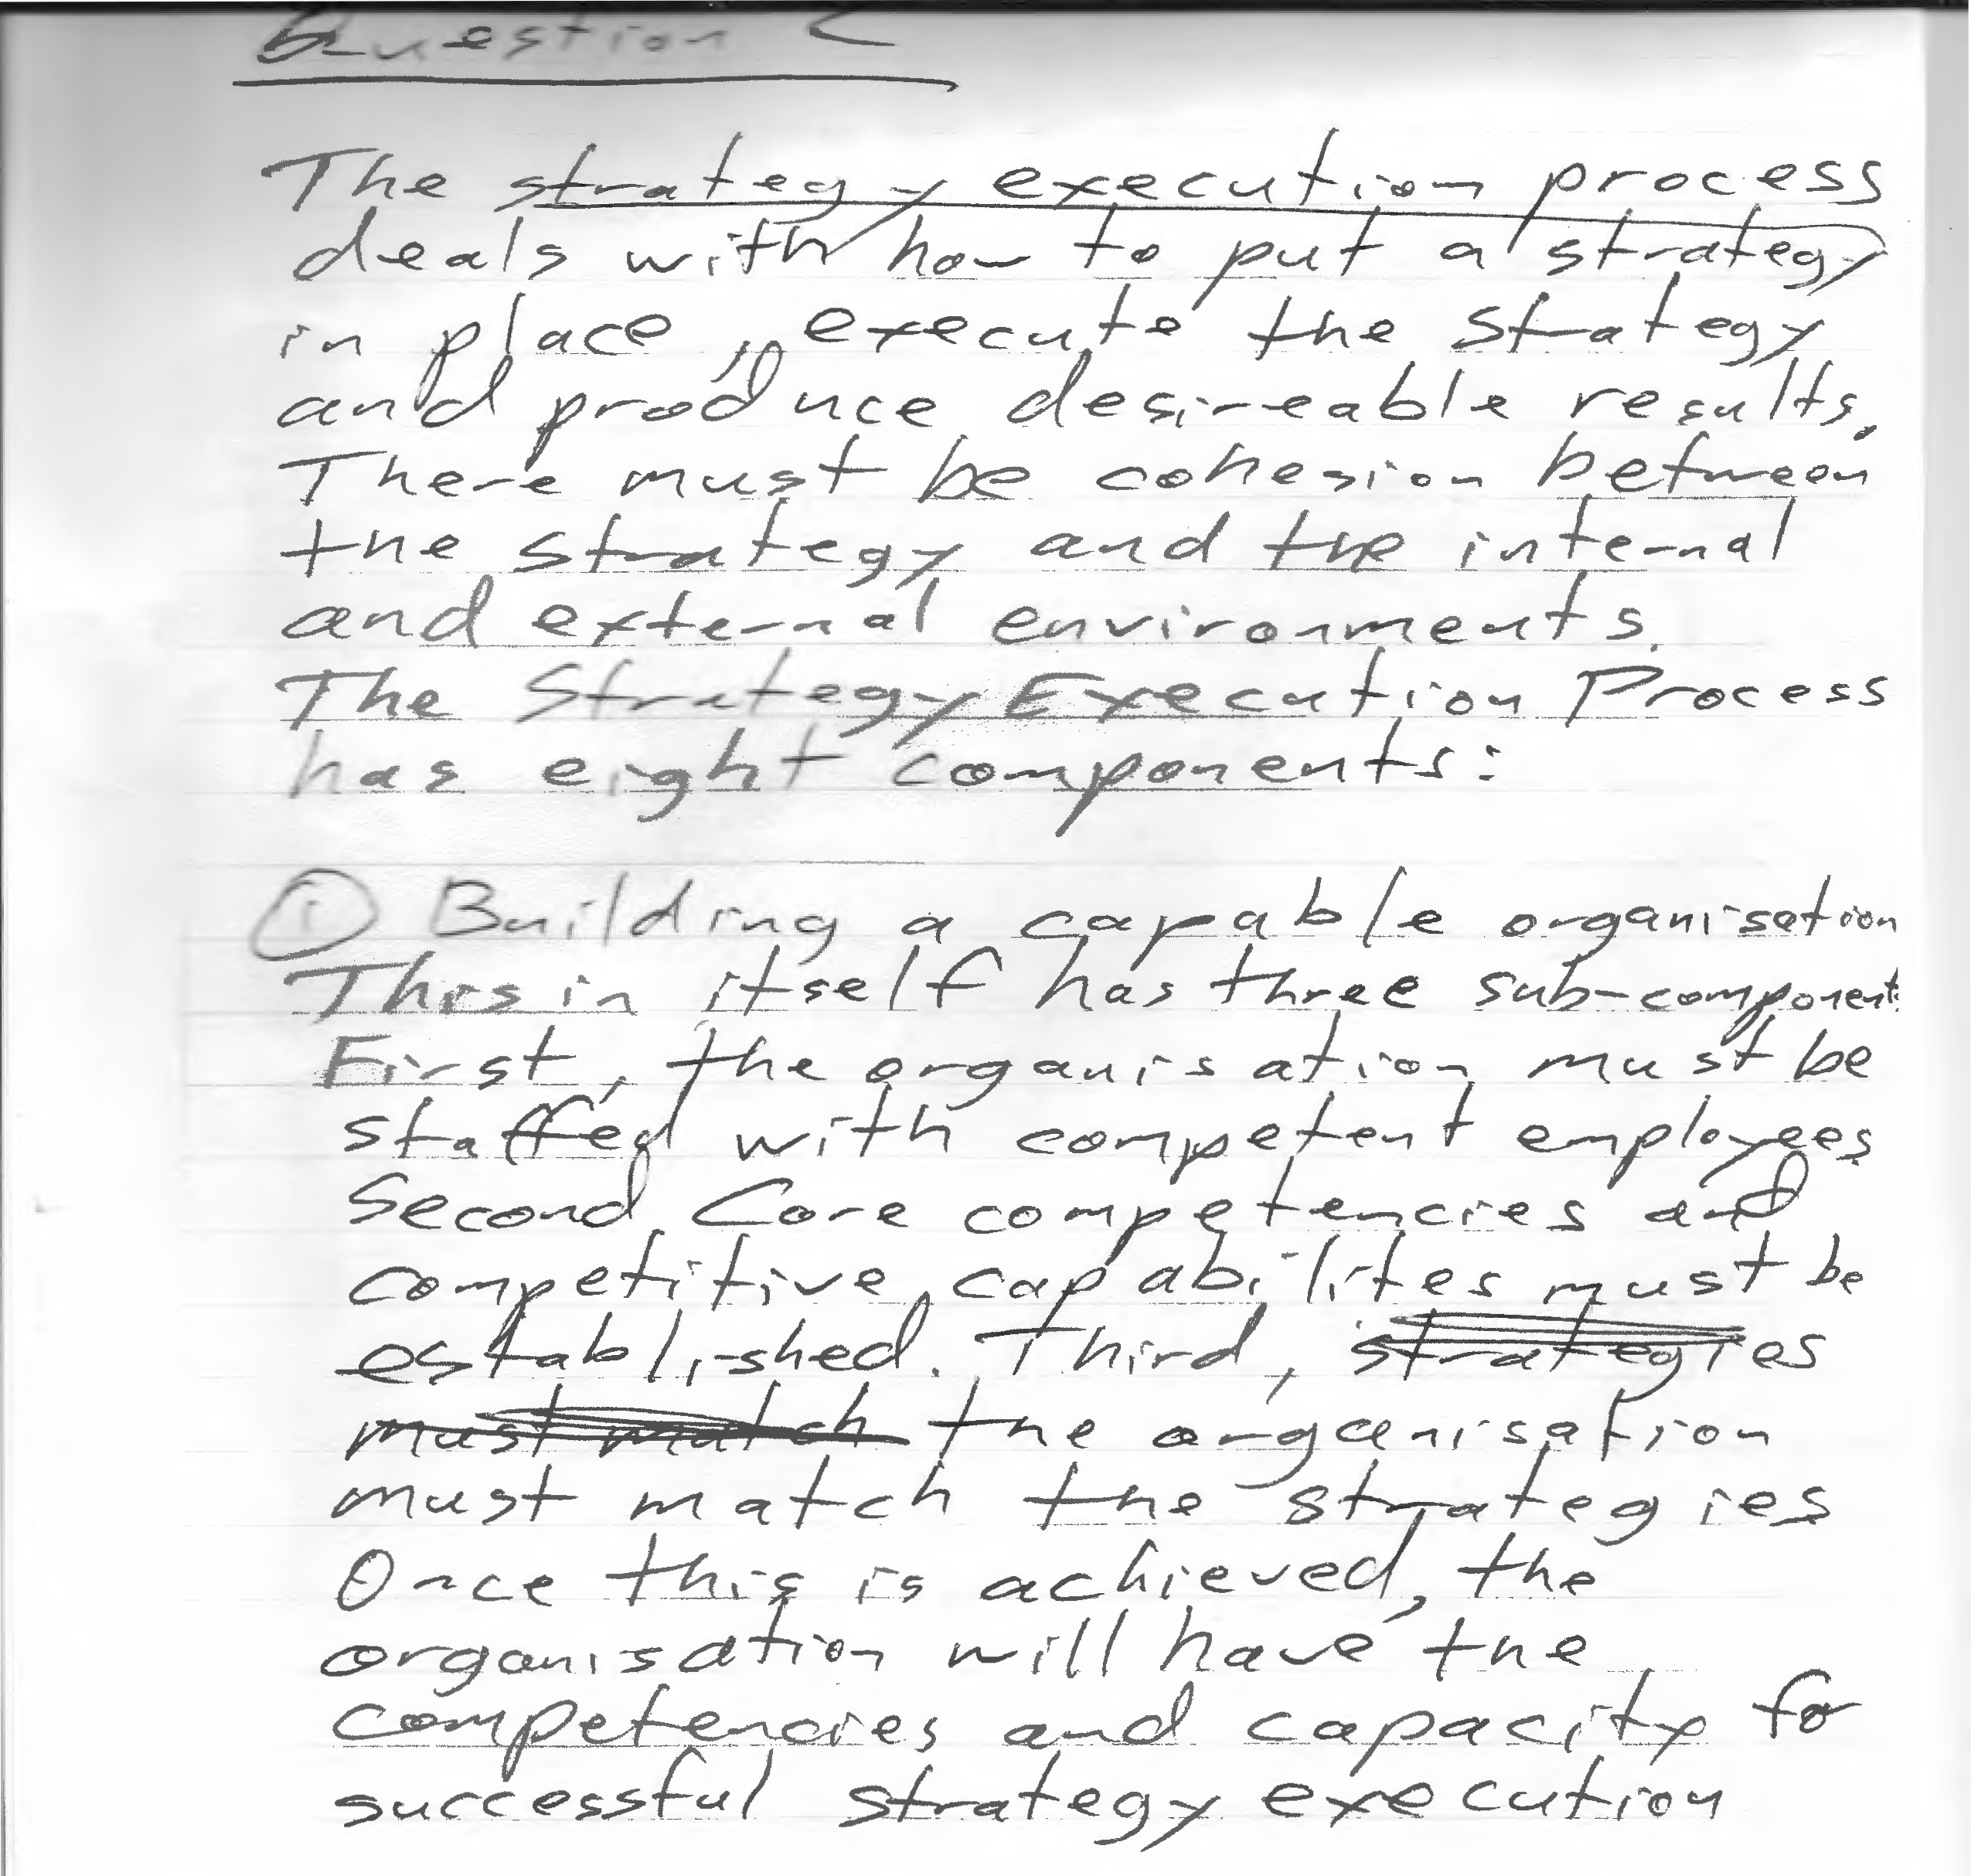 Question 2
The strategy execution process
deals with how to put a strategy
in place, execute the strategy
and produce desireable results.
There must be cohesion between
the strategy and the internal
and external environments.
The Strategy Execution Process
has eight components:
① Building a capable organisation
This in itself has three sub-components
First, the organisation must be
staffed with competent employees
Second. Core competencies and
competitive capabilites must be
established. Third, strategies
must match the organisation
must match the strategies
Once this is achieved, the
organisation will have the
competencies and capacity for
successful strategy execution